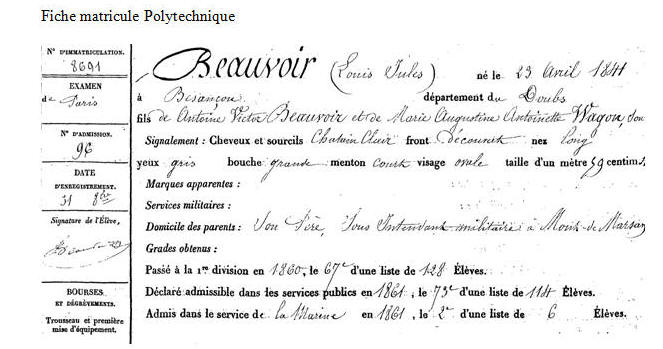 Fiche matricule Polytechnique
N° D'IMMATRICULATION.
8691
EXAMEN
de Paris
N° D'ADMISSION.
96
DATE
D'ENREGISTREMENT.
31 8bre
Signature de l'Élève,
BOURSES
ET DÉGRÈVEMENTS.
Trousseau et première
mise d'équipement.
Beauvoir (Louis Jules) né le 23 Avril 1841
à Besançon département du Doubs
fils de Antoine Victor Beauvoir et de Marie Augustine Antoinette Wagon, son
Signalement : Cheveux et sourcils Chatain Clair front découvert nez long
yeux gris bouche grande menton court visage ovale taille d'un mètre 59 centim.
Marques apparentes :
Services militaires :
Domicile des parents : Son Père, Sous Intendant militaire à Mont-de-Marsan
Grades obtenus :
Passé à la 1re division en 1860, le 67e d'une liste de 128 Élèves.
Déclaré admissible dans les services publics en 1861, le 73e d'une liste de 114 Élèves.
Admis dans le service de la Marine en 1861, le 2e d'une liste de 6 Élèves.